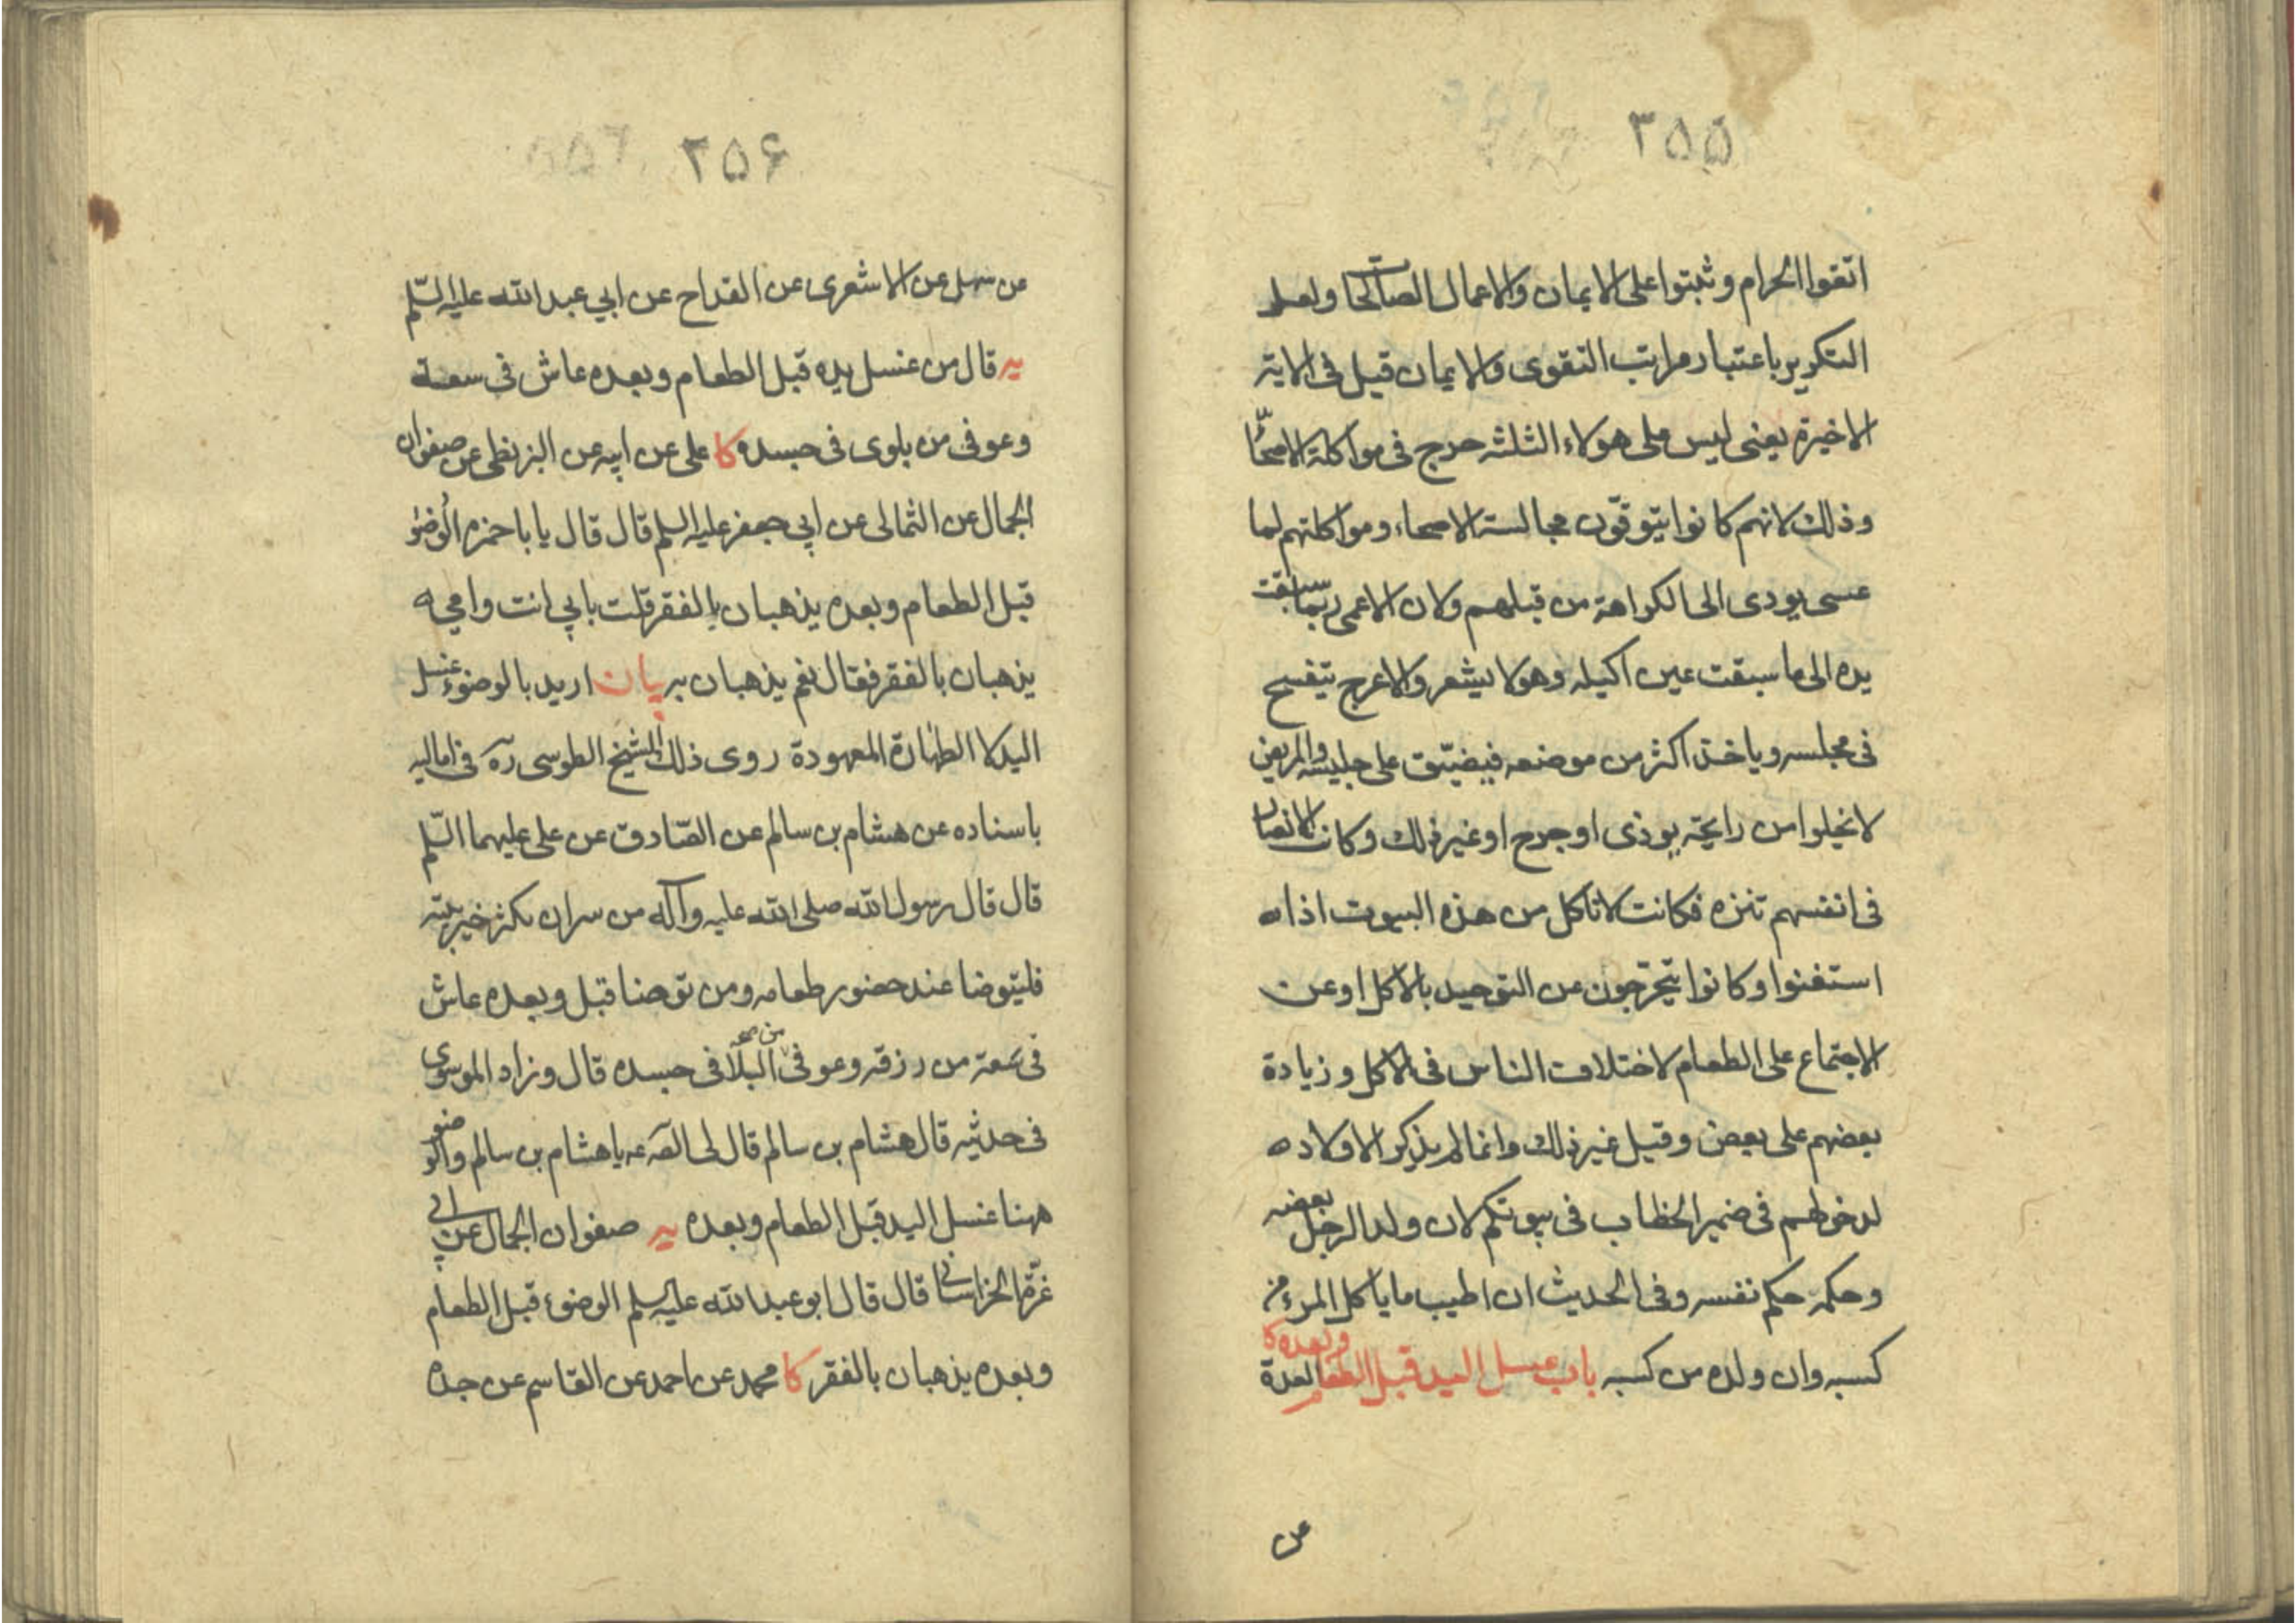 ۳۵۵
اتقوا الحرام وثبتوا على الايمان والاعمال الصالحات ولعل
التكرير باعتبار مراتب التقوى والايمان قيل فى الاية
الاخيرة يعنى ليس على هولاء الثلثة حرج فى مواكلة الاصحا
وذلك لانهم كانوا يتوقون مجالسة الاصحاء ومواكلتهم لما
عسى يودى الى الكراهة من قبلهم ولان الاعمى ربما سبقت
يده الى ما سبقت عين اكيله وهو لا يشعر والاعرج يتفسح
فى مجلسه وياخذ اكثر من موضعه فيضيّق على جليسه والمريض
لا يخلوا من رايحة يوذى او جرح او غير ذلك وكانت الانصار
فى انفسهم تنزه فكانت لا تاكل من هذه البيوت اذا ه
استغنوا وكانوا يتحرّجون عن التوحيد بالاكل او عن
الاجتماع على الطعام لاختلاف الناس فى الاكل وزيادة
بعضهم على بعض وقيل غير ذلك وانما لم يذكر الاولاد ه
لدخولهم فى ضمير الخطاب فى بيوتكم لان ولد الرجل بعضه
وحكمه حكم نفسه وفى الحديث ان اطيب ما ياكل المرء من
كسبه وان ولده من كسبه باب غسل اليد قبل الطعام وبعده كا العدة
عن
۳۵۶
عن سهل عن الاشعرى عن القداح عن ابي عبد الله عليه السّلم
يه قال من غسل يده قبل الطعام وبعده عاش فى سعة
وعوفى من بلوى فى جسده كا على عن ابيه عن البزنطى عن صفوان
الجمال عن الثمالى عن ابي جعفر عليه السلم قال قال يا با حمزه الوضوء
قبل الطعام وبعده يذهبان بالفقر قلت بابي انت وامي ه
يذهبان بالفقر فقال نعم يذهبان به بيان اريد بالوضوء غسل
اليد لا الطهارة المعهودة روى ذلك الشيخ الطوسى ره فى اماليه
باسناده عن هشام بن سالم عن الصّادق عن على عليهما السّلم
قال قال رسول الله صلى الله عليه وآله من سره ان يكثر خير بيته
فليتوضا عند حضور طعامه ومن توضا قبل وبعده عاش
فى سعة من رزقه وعوفى من صح البلآ فى جسده قال وزاد الموسوى
فى حديثه قال هشام بن سالم قال لى الصّ عه يا هشام بن سالم والوضو
ههنا غسل اليد قبل الطعام وبعده يه صفوان الجمال عن ابى
غرّة الخراسانى قال قال ابو عبد الله عليه السلم الوضوء قبل الطعام
وبعده يذهبان بالفقر كا محمد عن احمد عن القاسم عن جده